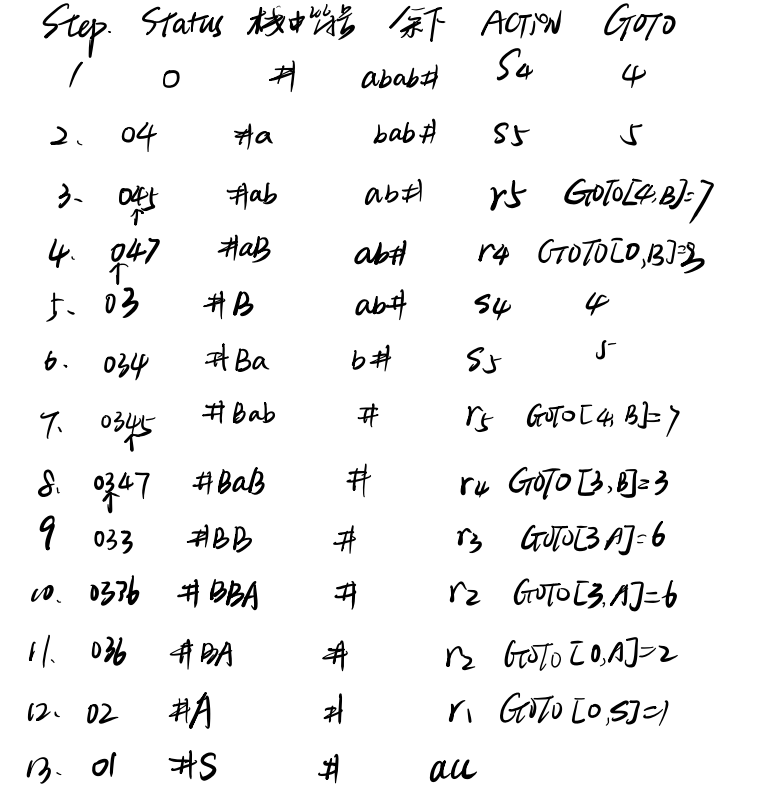 Step. Status 栈中符号 余下 ACTION GOTO
1 0 # abab# S4 4
2、 04 #a bab# S5 5
3、 045 #ab ab# r5 GOTO[4,B]=7
4、 047 #aB ab# r4 GOTO[0,B]=3
5、 03 #B ab# S4 4
6、 034 #Ba b# S5 5
7、 0345 #Bab # r5 GOTO[4,B]=7
8、 0347 #BaB # r4 GOTO[3,B]=3
9 033 #BB # r3 GOTO[3A]=6
10、 0336 #BBA # r2 GOTO[3,A]=6
11、 036 #BA # r2 GOTO[0,A]=2
12、 02 #A # r1 GOTO[0,S]=1
13、 01 #S # acc